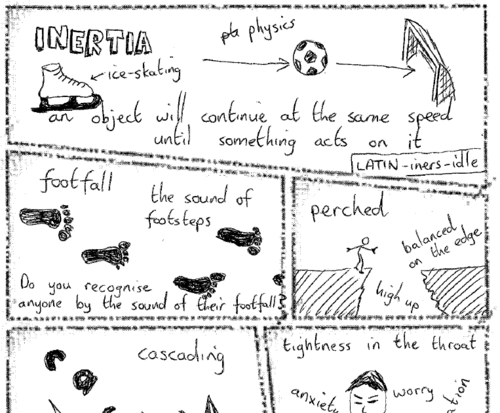 INERTIA
physics
ice-skating
an object will continue at the same speed
until something acts on it
LATIN-iners-idle
footfall
the sound of
footsteps
Do you recognise
anyone by the sound of their footfall?
perched
balanced
on the edge
high up
cascading
tightness in the throat
worry